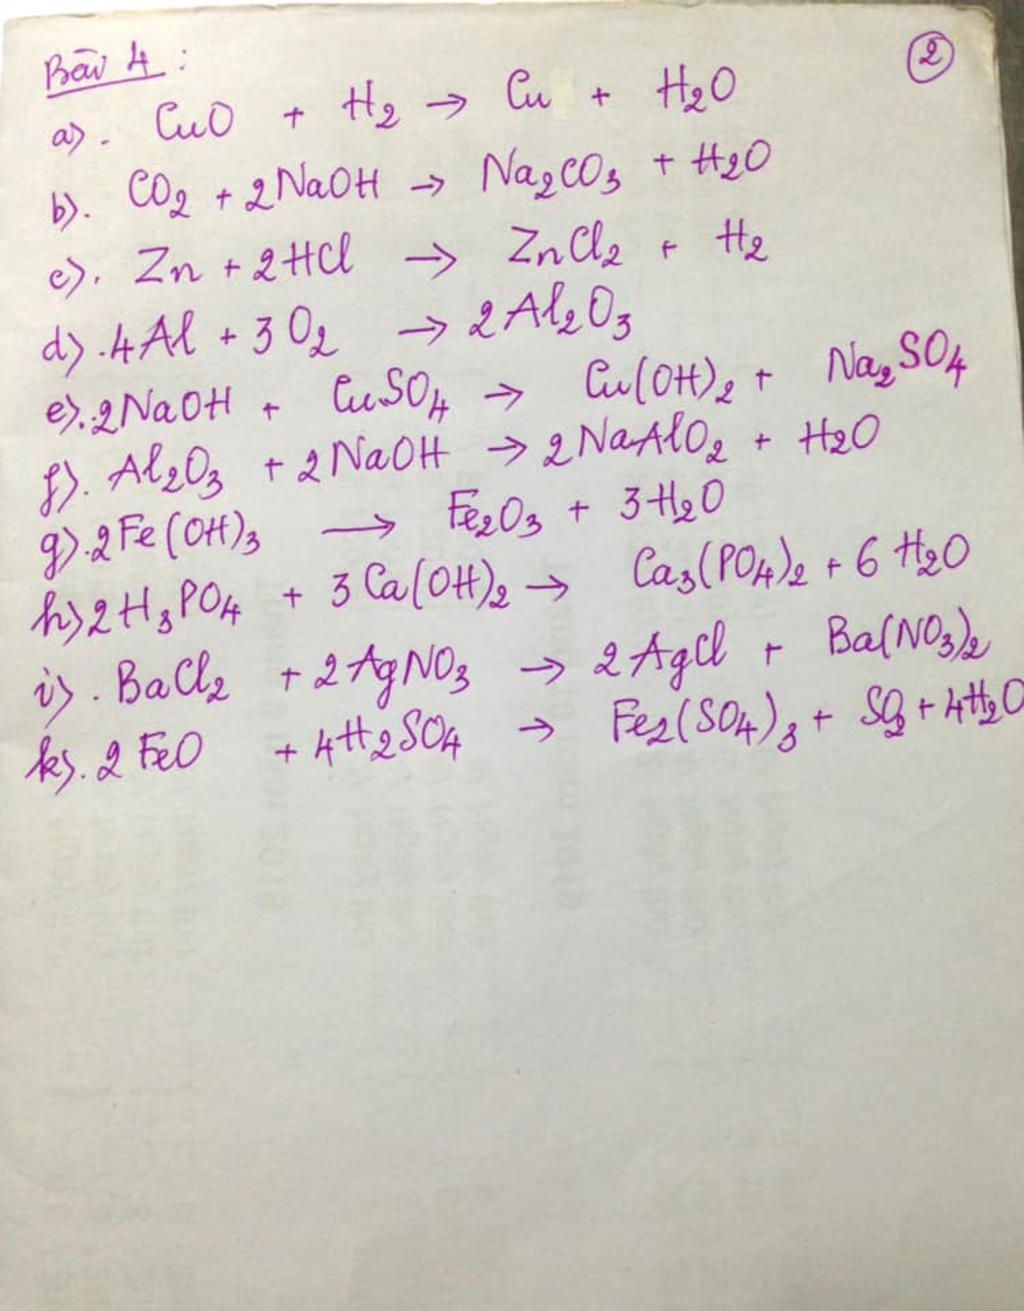 Bài 4 :
②
a). CuO + H₂ → Cu + H₂O
b). CO₂ + 2NaOH → Na₂CO₃ + H₂O
c). Zn + 2HCl → ZnCl₂ + H₂
d). 4Al + 3O₂ → 2Al₂O₃
e). 2NaOH + CuSO₄ → Cu(OH)₂ + Na₂SO₄
f). Al₂O₃ + 2NaOH → 2NaAlO₂ + H₂O
g). 2Fe(OH)₃ → Fe₂O₃ + 3H₂O
h) 2H₃PO₄ + 3Ca(OH)₂ → Ca₃(PO₄)₂ + 6H₂O
i). BaCl₂ + 2AgNO₃ → 2AgCl + Ba(NO₃)₂
k). 2FeO + 4H₂SO₄ → Fe₂(SO₄)₃ + SO₂ + 4H₂O